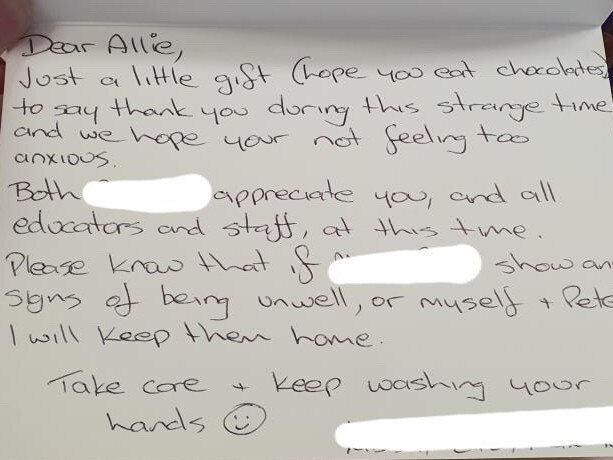 Dear Allie,
Just a little gift (hope you eat chocolates)
to say thank you during this strange time
and we hope your not feeling too
anxious.
Both appreciate you, and all
educators and staff, at this time.
Please know that if show
signs of being unwell, or myself + Pete
I will keep them home.
Take care + keep washing your
hands ☺